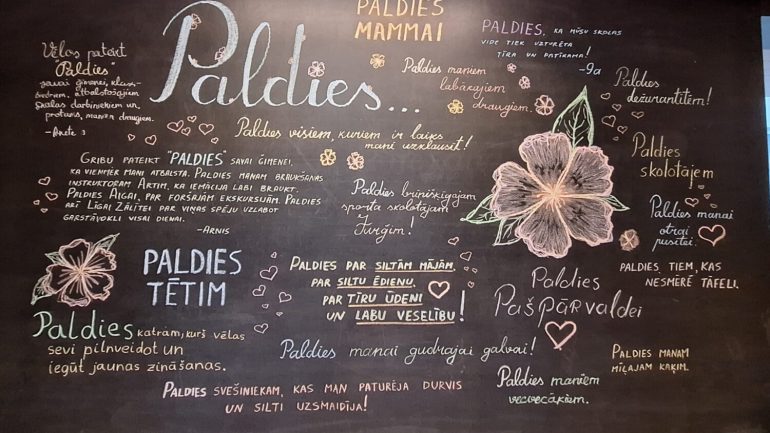 Vēlos pateikt
"Paldies"
savai ģimenei, klas-
biedriem, atbalstošajiem
skolas darbiniekiem un,
protams, maniem draugiem.
-Anete :)
Paldies...
PALDIES
MAMMAI
PALDIES, KA MŪSU SKOLAS
VIDE TIEK UZTVERTA
TĪRA UN PATĪKAMA!
-9a
Paldies maniem
labākajiem
draugiem.
Paldies
dežurantitēm!
Paldies visiem, kuriem ir laiks
mani uzklausīt!
GRIBU PATEIKT "PALDIES" SAVAI ĢIMENEI,
KA VIENMĒR MANI ATBALSTA. PALDIES MANAM BRAUKŠANAS
INSTRUKTORAM ARTIM, KA IEMĀCĪJA LABI BRAUKT.
PALDIES AIGAI, PAR FORŠAJĀM EKSKURSIJĀM. PALDIES
ARĪ LĪGAI ZĀLĪTEI PAR VIŅAS SPĒJU UZLABOT
GARSTĀVOKLI VISAI DIENAI.
-ARNIS
Paldies brīnišķīgajam
sporta skolotājam
Jurģim!
Paldies
skolotājiem
Paldies manai
otrai
pusītei.
PALDIES, TIEM, KAS
NESMĒRĒ TĀFELI.
PALDIES
TĒTIM
PALDIES PAR SILTĀM MĀJĀM,
PAR SILTU ĒDIENU,
PAR TĪRU ŪDENI
UN LABU VESELĪBU!
Paldies
Pašpārvaldei
Paldies katram, kurš vēlas
sevi pilnveidot un
iegūt jaunas zināšanas.
Paldies manai gudrajai galvai!
PALDIES MANAM
MĪĻAJAM KAĶIM.
PALDIES SVEŠINIEKAM, KAS MAN PATURĒJA DURVIS
UN SILTI UZSMAIDĪJA!
Paldies maniem
vecvecākiem.